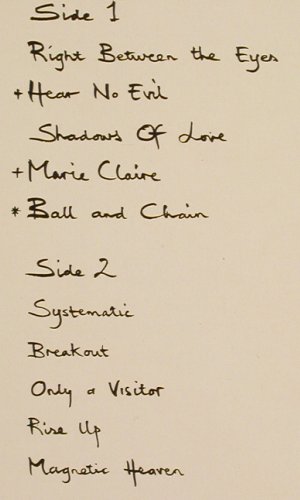 Side 1
Right Between the Eyes
+ Hear No Evil
Shadows Of Love
+ Marie Claire
* Ball and Chain
Side 2
Systematic
Breakout
Only a Visitor
Rise Up
Magnetic Heaven